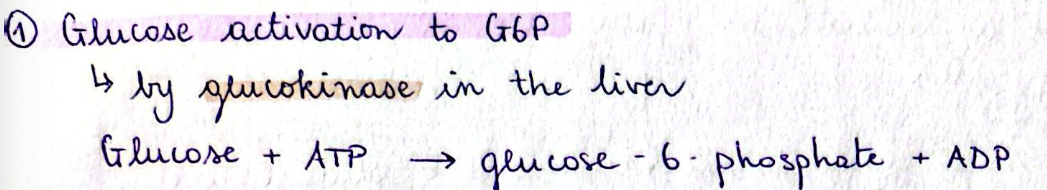 ① Glucose activation to G6P
↳ by glucokinase in the liver
Glucose + ATP → glucose-6-phosphate + ADP